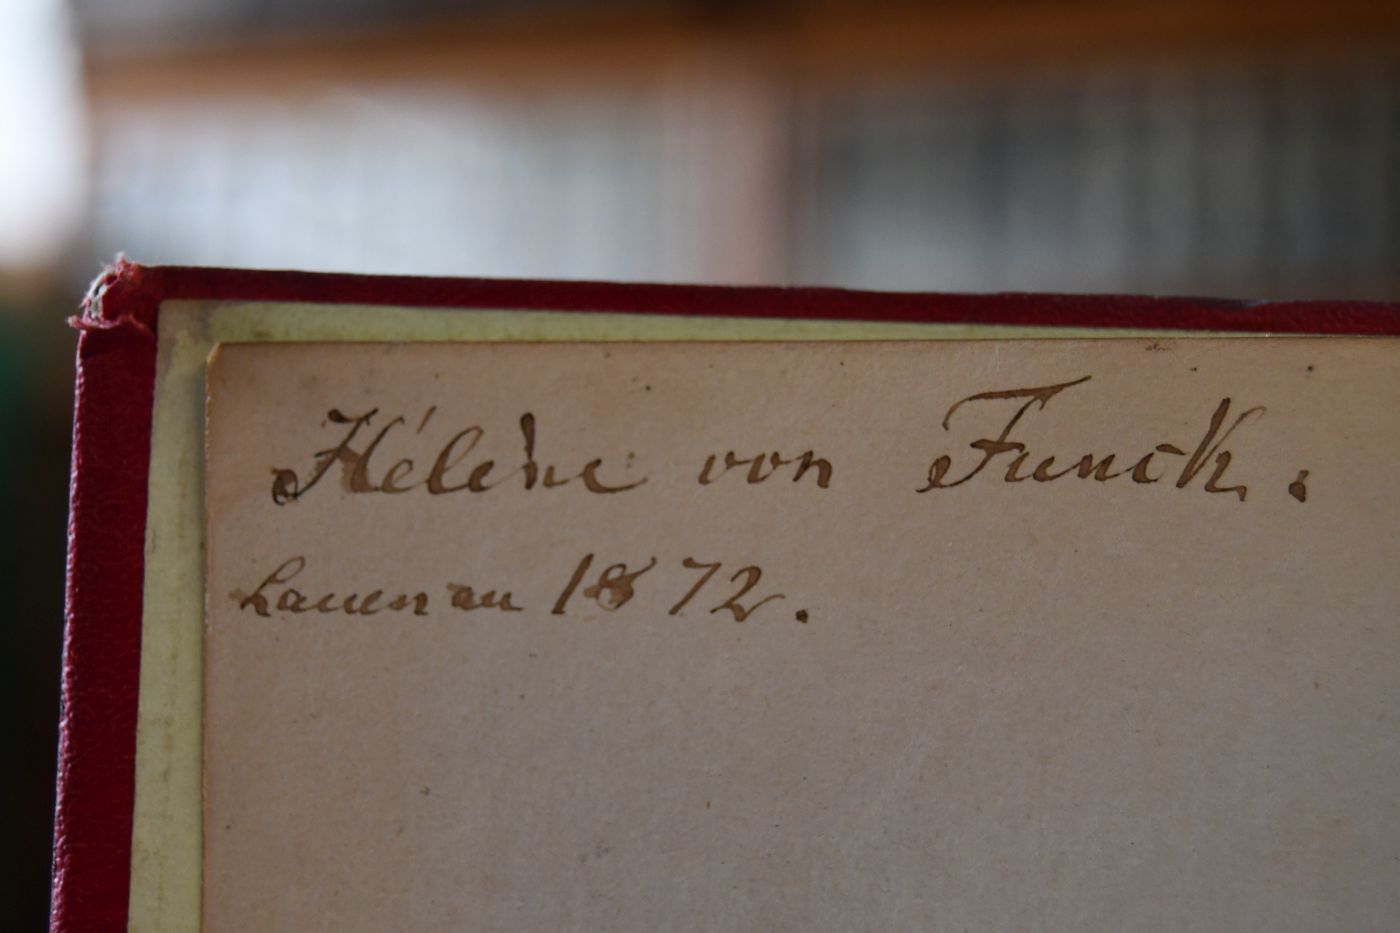 Hélène von Funck.
Lauenau 1872.